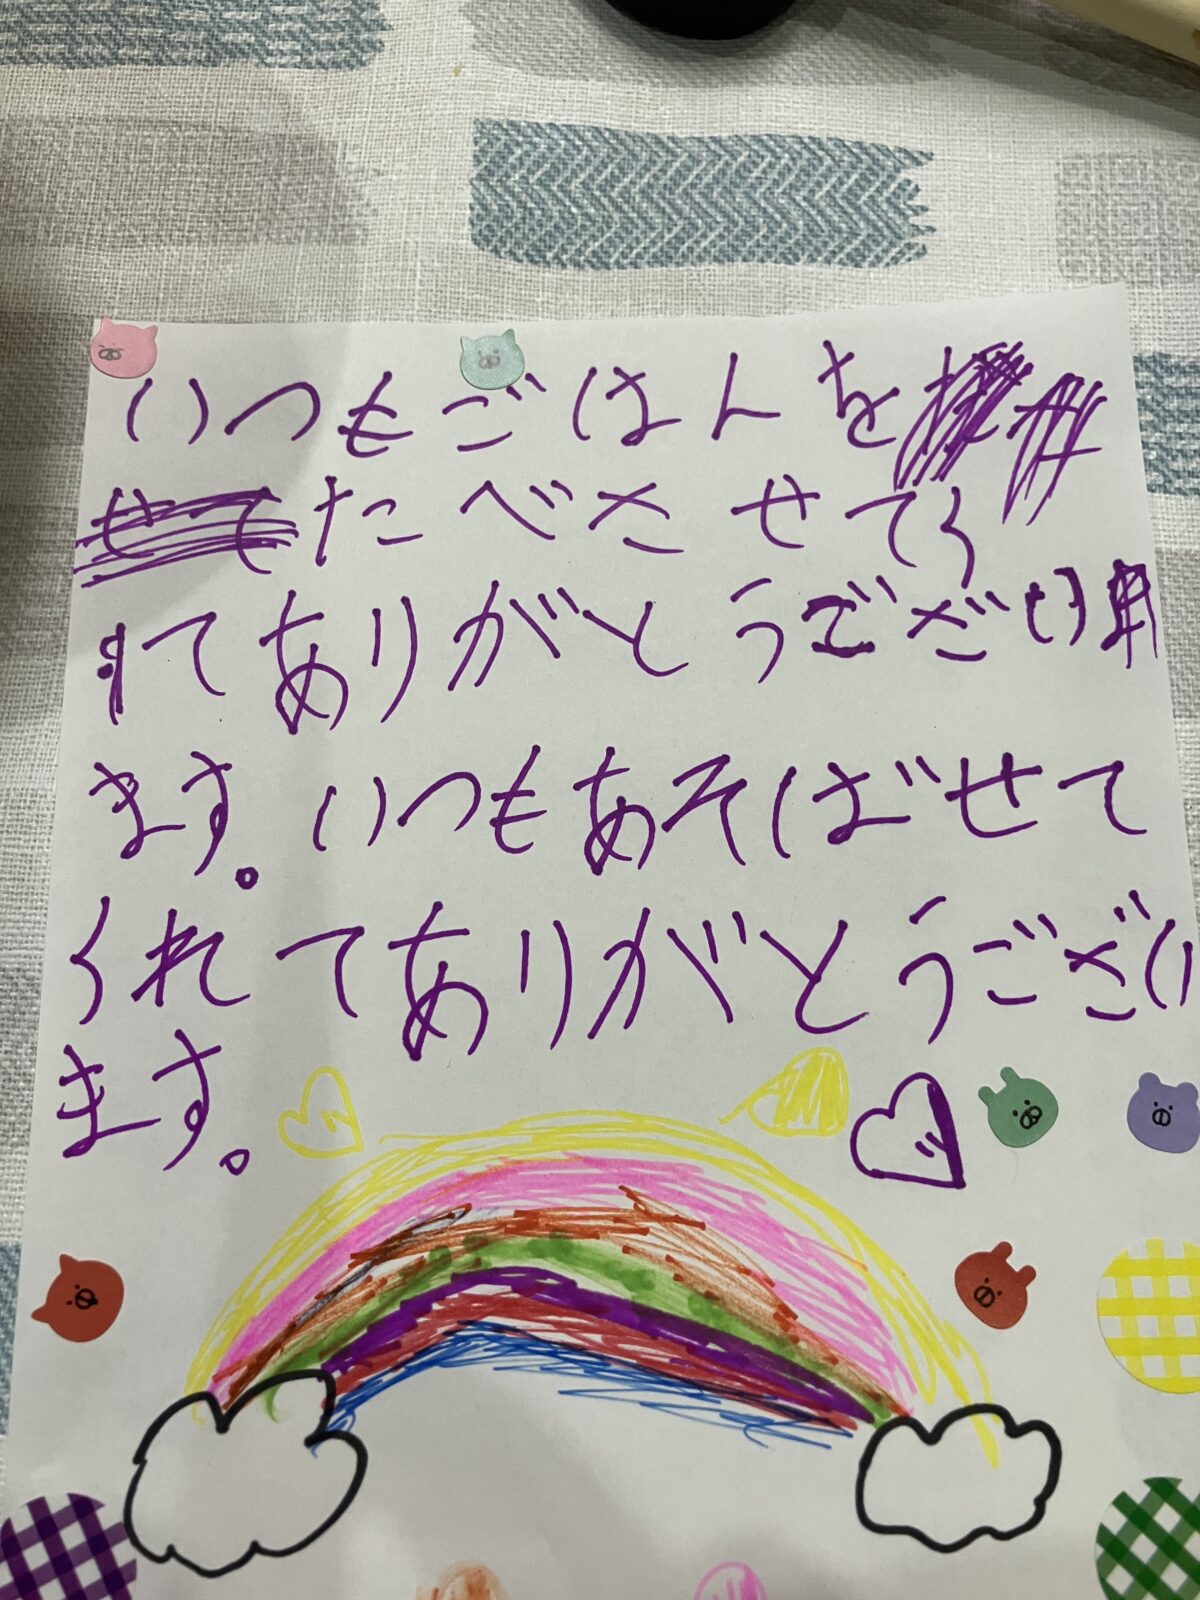 いつもごはんを
たべさせてく
てありがとうござい
ます。いつもあそばせて
くれてありがとうござい
ます。